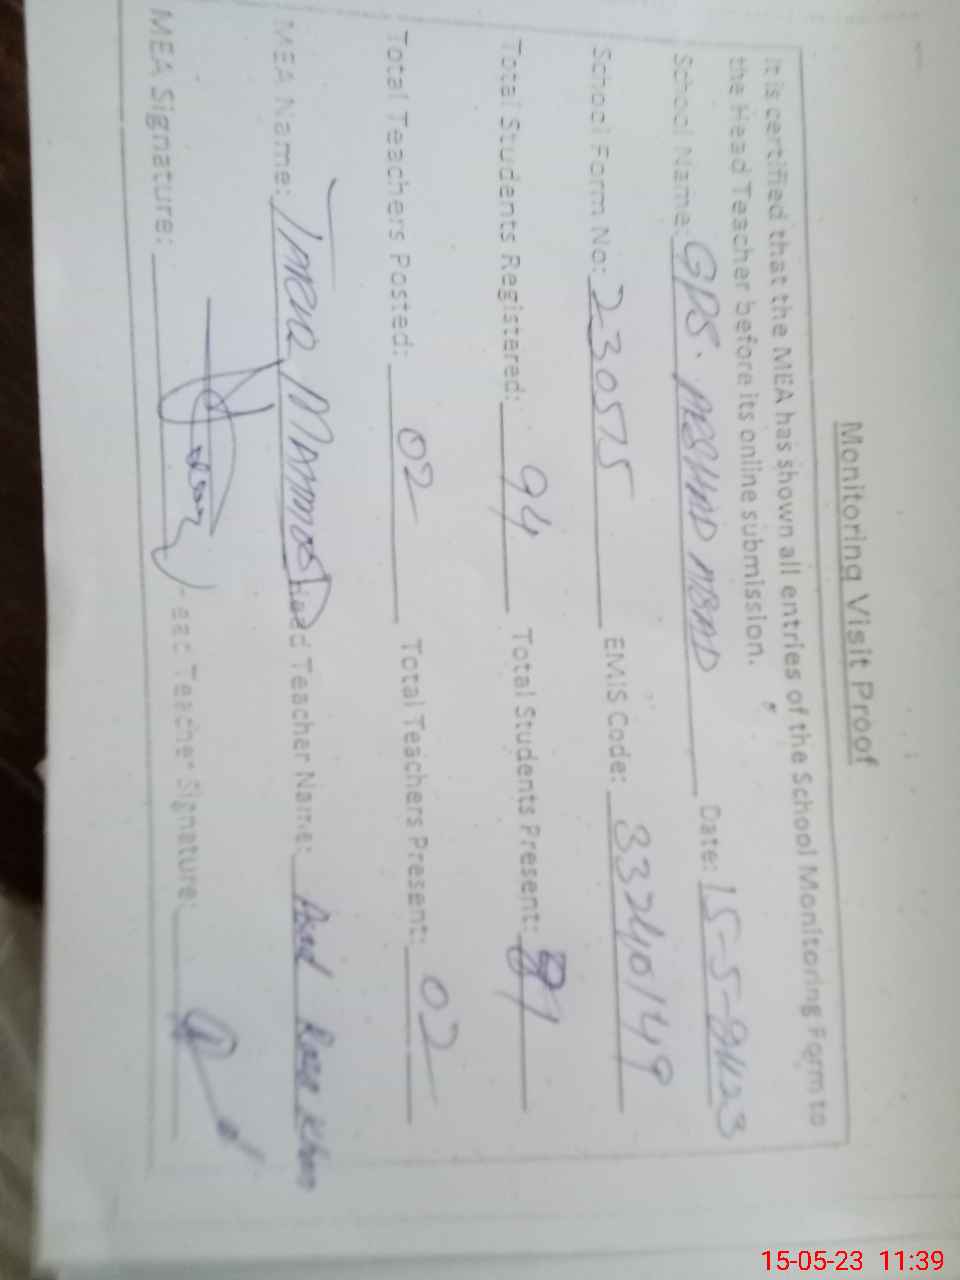 Monitoring Visit Proof
It is certified that the MEA has shown all entries of the School Monitoring Form to
the Head Teacher before its online submission.
School Name: GPS. ARSHAD ABAD Date: 15-5-2023
School Form No: 23075 EMIS Code: 33240149
Total Students Registered: 94 Total Students Present:
Total Teachers Posted: 02 Total Teachers Present: 02
MEA Name: Head Teacher Name: Asad Raza Khan
MEA Signature: Head Teacher Signature:
15-05-23 11:39